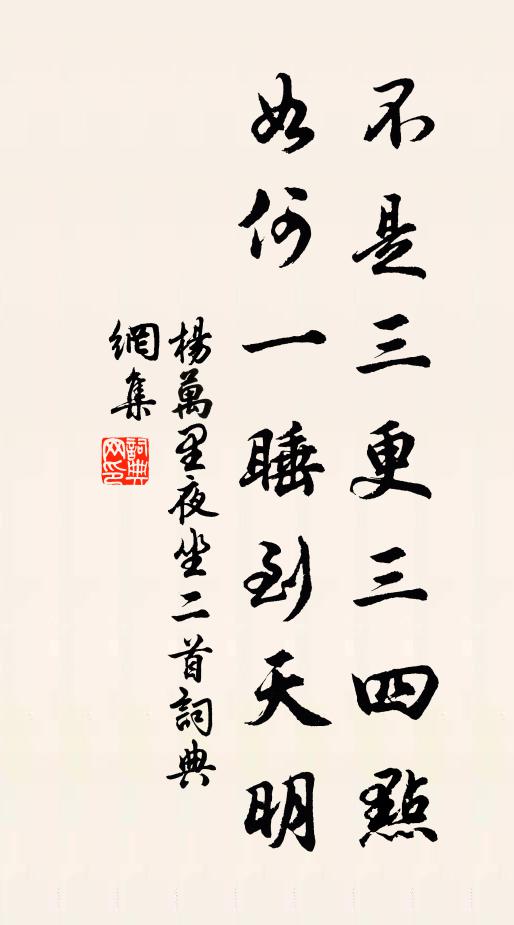 不是三更三四點
如何一睡到天明
楊萬里夜坐二首詞典
網集
詞典
網印